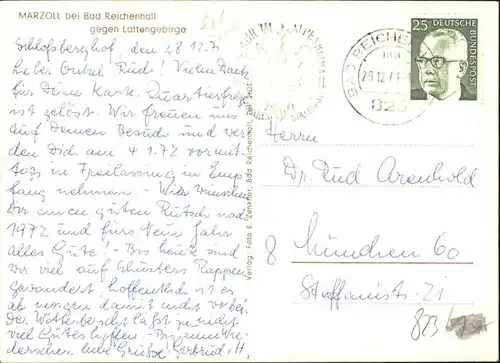 MARZOLL bei Bad Reichenhall
gegen Lattengebirge
Schloßberghof den 28 12.71
Lieber Onkel Rud! Vielen Dank
für Deine Karte. Quartierfrage
ist gelöst. Wir freuen uns
auf Deinen Besuch und wer
den Dich am 4.1.72 vormit
tag in Freilassing in Emp
fang nehmen. - Wir wünschen
Dir einen guten Rutsch nach
1972 und fürs Neue Jahr
alles Gute! - Bis heute sind
wir viel auf Schusters Rappen
gewandert hoffentlich ist es
ab morgen damit nicht vorbei.
Der Wetterbericht läßt ja nicht
viel Gutes hoffen. - Bis zum Wie-
dersehen liebe Grüße Gertrud, H.
Verlag: Foto E. Zenkner, Bad Reichenhall
25
DEUTSCHE
BUNDESPOST
REICHE
Herrn
Dr. Rud Arenhold
8 München 60
823